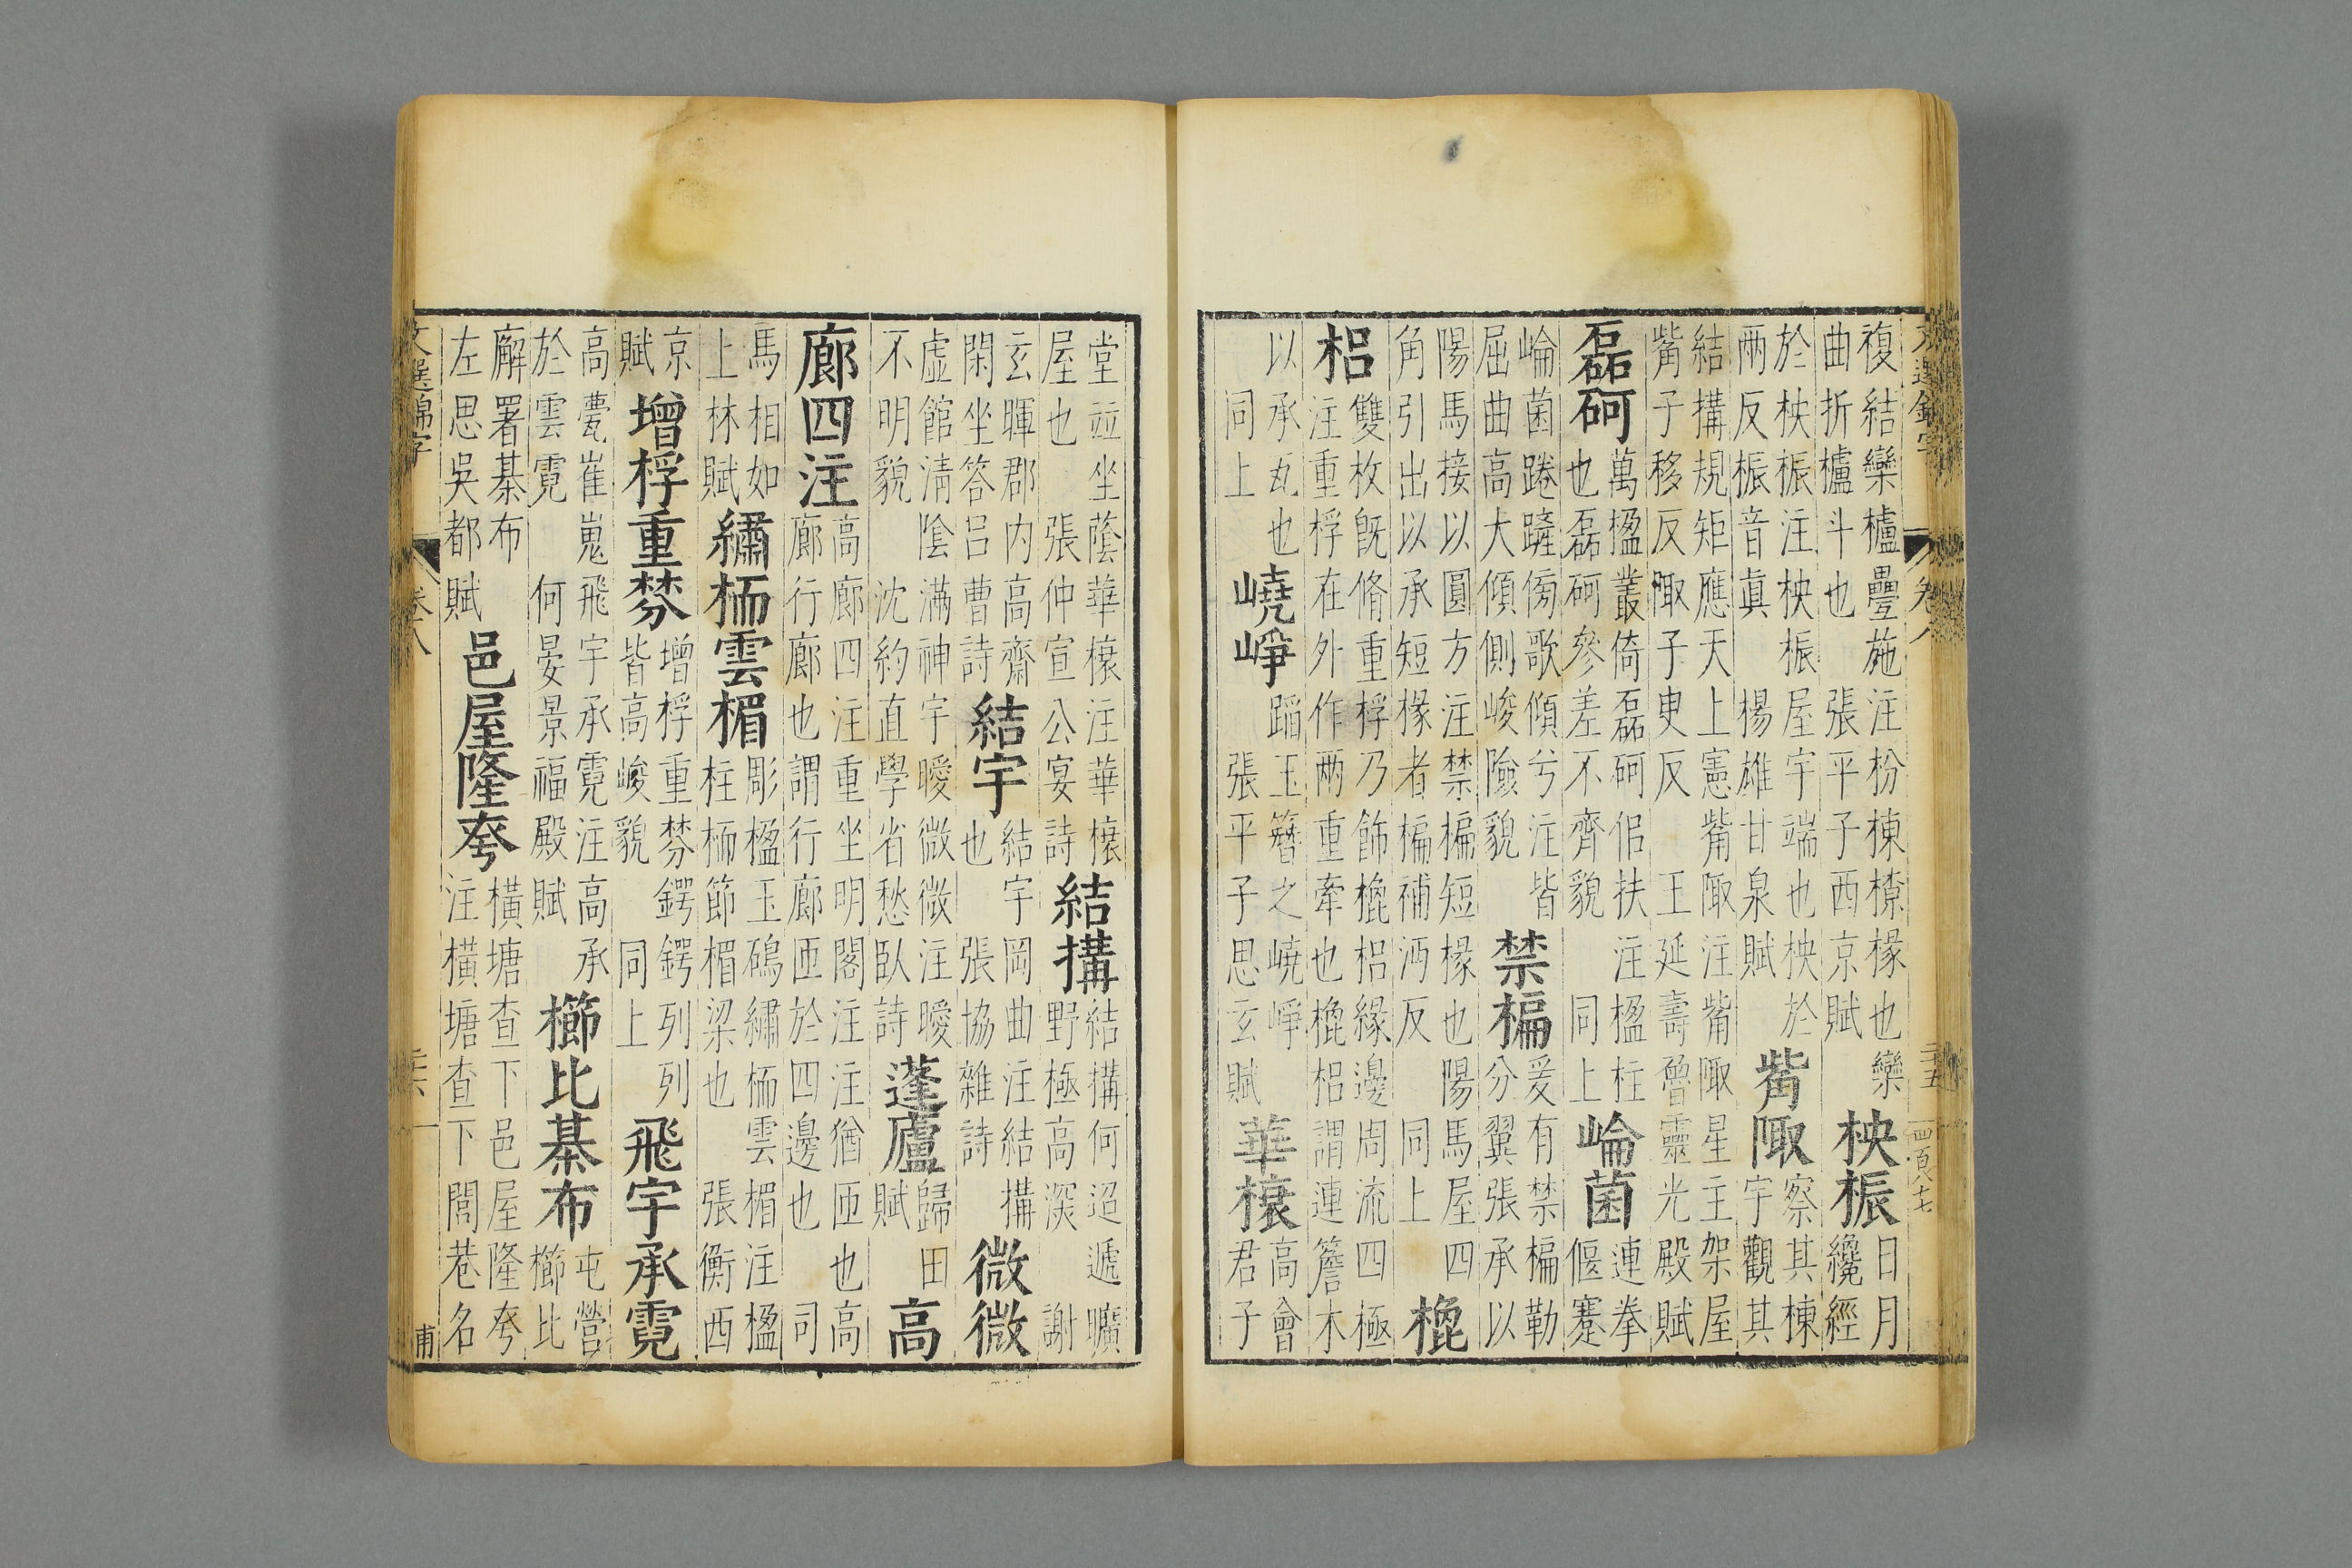 文選錦字 卷八 二十五 四百十七
複結欒櫨疊施注枌棟橑椽也欒
曲折櫨斗也 張平子西京賦
柍桭
日月
纔經
於柍桭注柍桭屋宇端也柍於
兩反桭音真 楊雄甘泉賦
觜陬
察其棟
宇觀其
結搆規矩應天上憲觜陬注觜陬星主架屋
觜子移反陬子臾反 王延壽魯靈光殿賦
磊砢
萬楹叢倚磊砢佀扶注楹柱
也磊砢參差不齊貌 同上
崘菌
連拳
偃蹇
崘菌踡嵼傍歌傾兮注皆
屈曲高大傾側峻險貌
禁楄
爰有禁楄勒
分翼張承以
陽馬接以圓方注禁楄短椽也陽馬屋四
角引出以承短椽者楄補沔反 同上
㮰
梠
雙枚旣脩重桴乃飾㮰梠緣邊周流四極
注重桴在外作兩重牽也㮰梠謂連簷木
以承瓦也
同上
嶢崢
蹈玉簪之嶢崢
張平子思玄賦
華榱
高會
君子
堂並坐蔭華榱注華榱
屋也 張仲宣公宴詩
結搆
結搆何迢遞曠
野極高深 謝
玄暉郡内高齋
閑坐答吕曹詩
結宇
結宇岡曲注結搆
也 張協雜詩
微微
虛館淸陰滿神宇曖微微注曖
不明貌 沈約直學省愁臥詩
蓬廬
歸田
賦
高
廊四注
高廊四注重坐明閣注注猶匝也高
廊行廊也謂行廊匝於四邊也 司
馬相如
上林賦
繡栭雲楣
彫楹玉磶繡栭雲楣注楹
柱栭節楣梁也 張衡西
京
賦
增桴重棼
增桴重棼鍔鍔列列
皆高峻貌 同上
飛宇承霓
高甍崔嵬飛宇承霓注高承
於雲霓 何晏景福殿賦
櫛比棊布
屯營
櫛比
廨署棊布
左思吳都賦
邑屋隆夸
橫塘查下邑屋隆夸
注橫塘查下閭巷名
文選錦字 卷八 二十六 甫